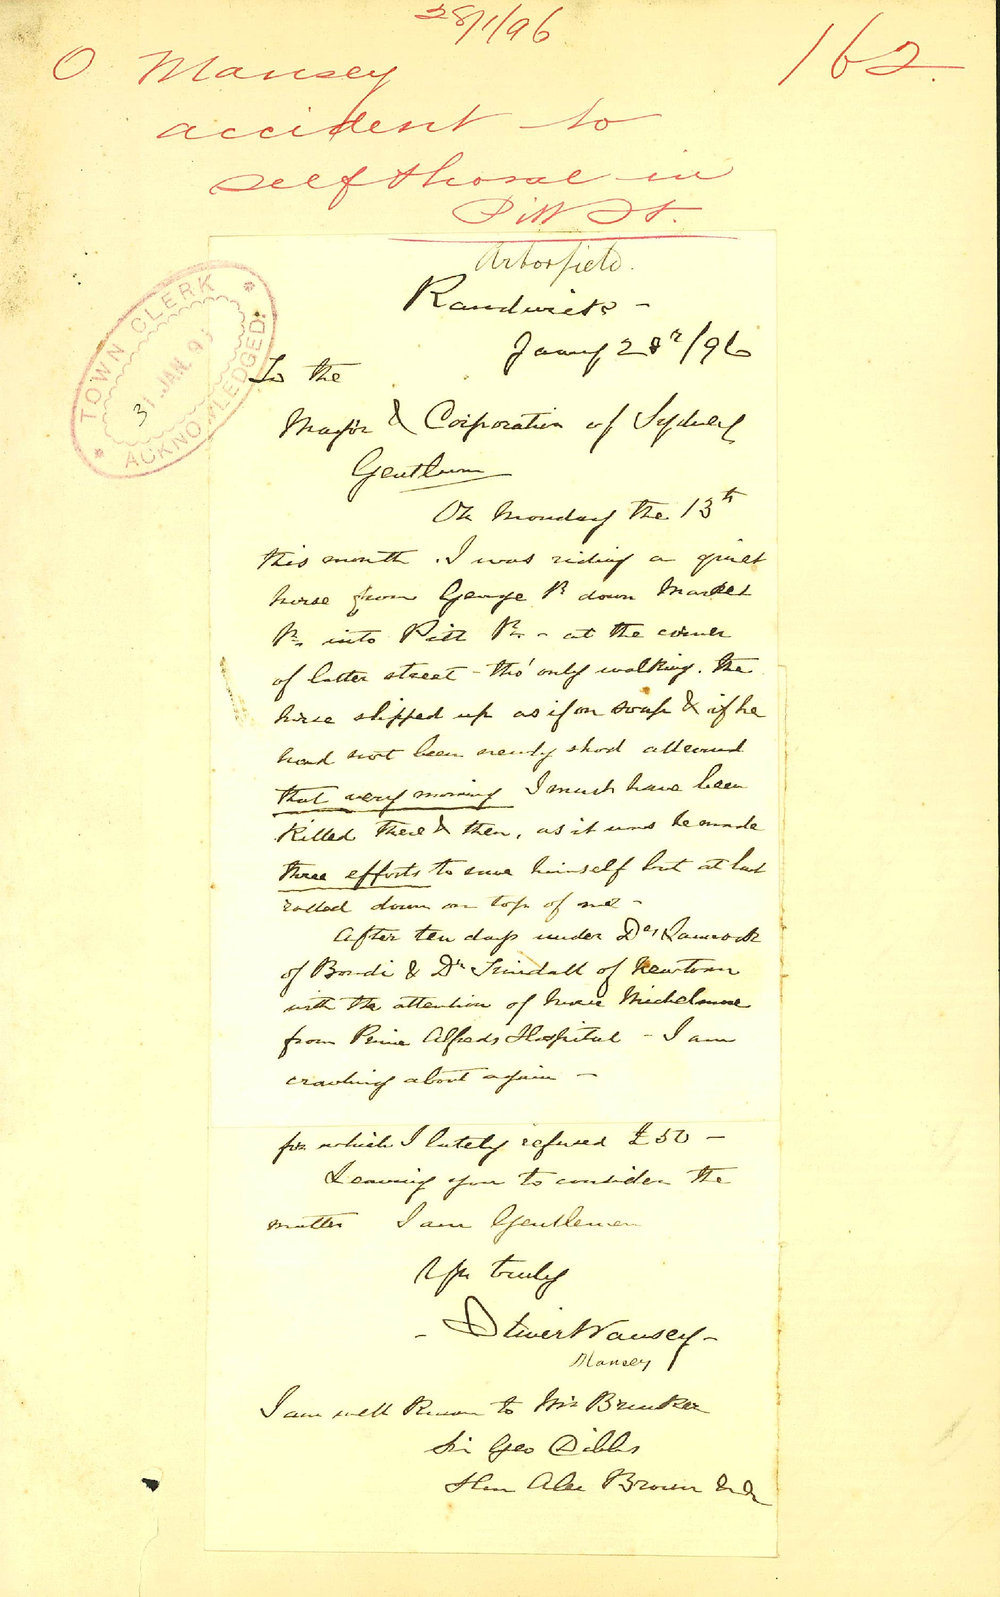 28/1/96
162
O Mansey
accident to
self & horse in
Pitt St.
Arborfield.
Randwick -
Jany 28th/96
TOWN CLERK
31 JAN. 96
ACKNOWLEDGED
To the
Mayor & Corporation of Sydney
Gentlemen
On Monday the 13th
this month. I was riding a quiet
horse from George St down Market
St. into Pitt St. - at the corner
of latter street - tho' only walking. the
horse slipped up as if on soap & if he
had not been newly shod all round
that very morning I must have been
killed there & then, as it was he made
three efforts to save himself but at last
rolled down on top of me -
After ten days under Dr.
of Bondi & Dr Trindall of Newtown
with the attention of Nurse Michelmore
from Prince Alfreds Hospital - I am
crawling about again -
for which I lately refused £50 -
Leaving you to consider the
matter I am Gentlemen
Yrs truly
- Oliver Mansey -
Mansey
I am well known to Mr Brunker
Sir Geo Dibbs
Hon Alex Brown &c &c